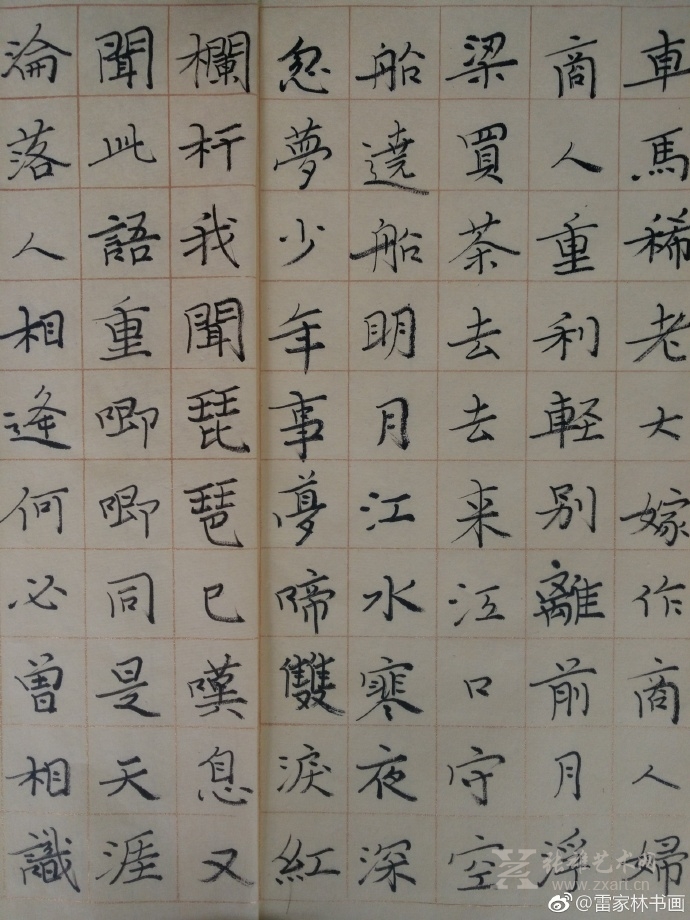 車馬稀老大嫁作商人婦
商人重利軽别離前月浮
梁買茶去去来江口守空
船遶船明月江水寒夜深
忽夢少年事夢啼雙淚紅
欄杆我聞琵琶已嘆息又
聞此語重唧唧同是天涯
淪落人相逢何必曾相識
张雄艺术网
www.zxart.cn
@雷家林书画